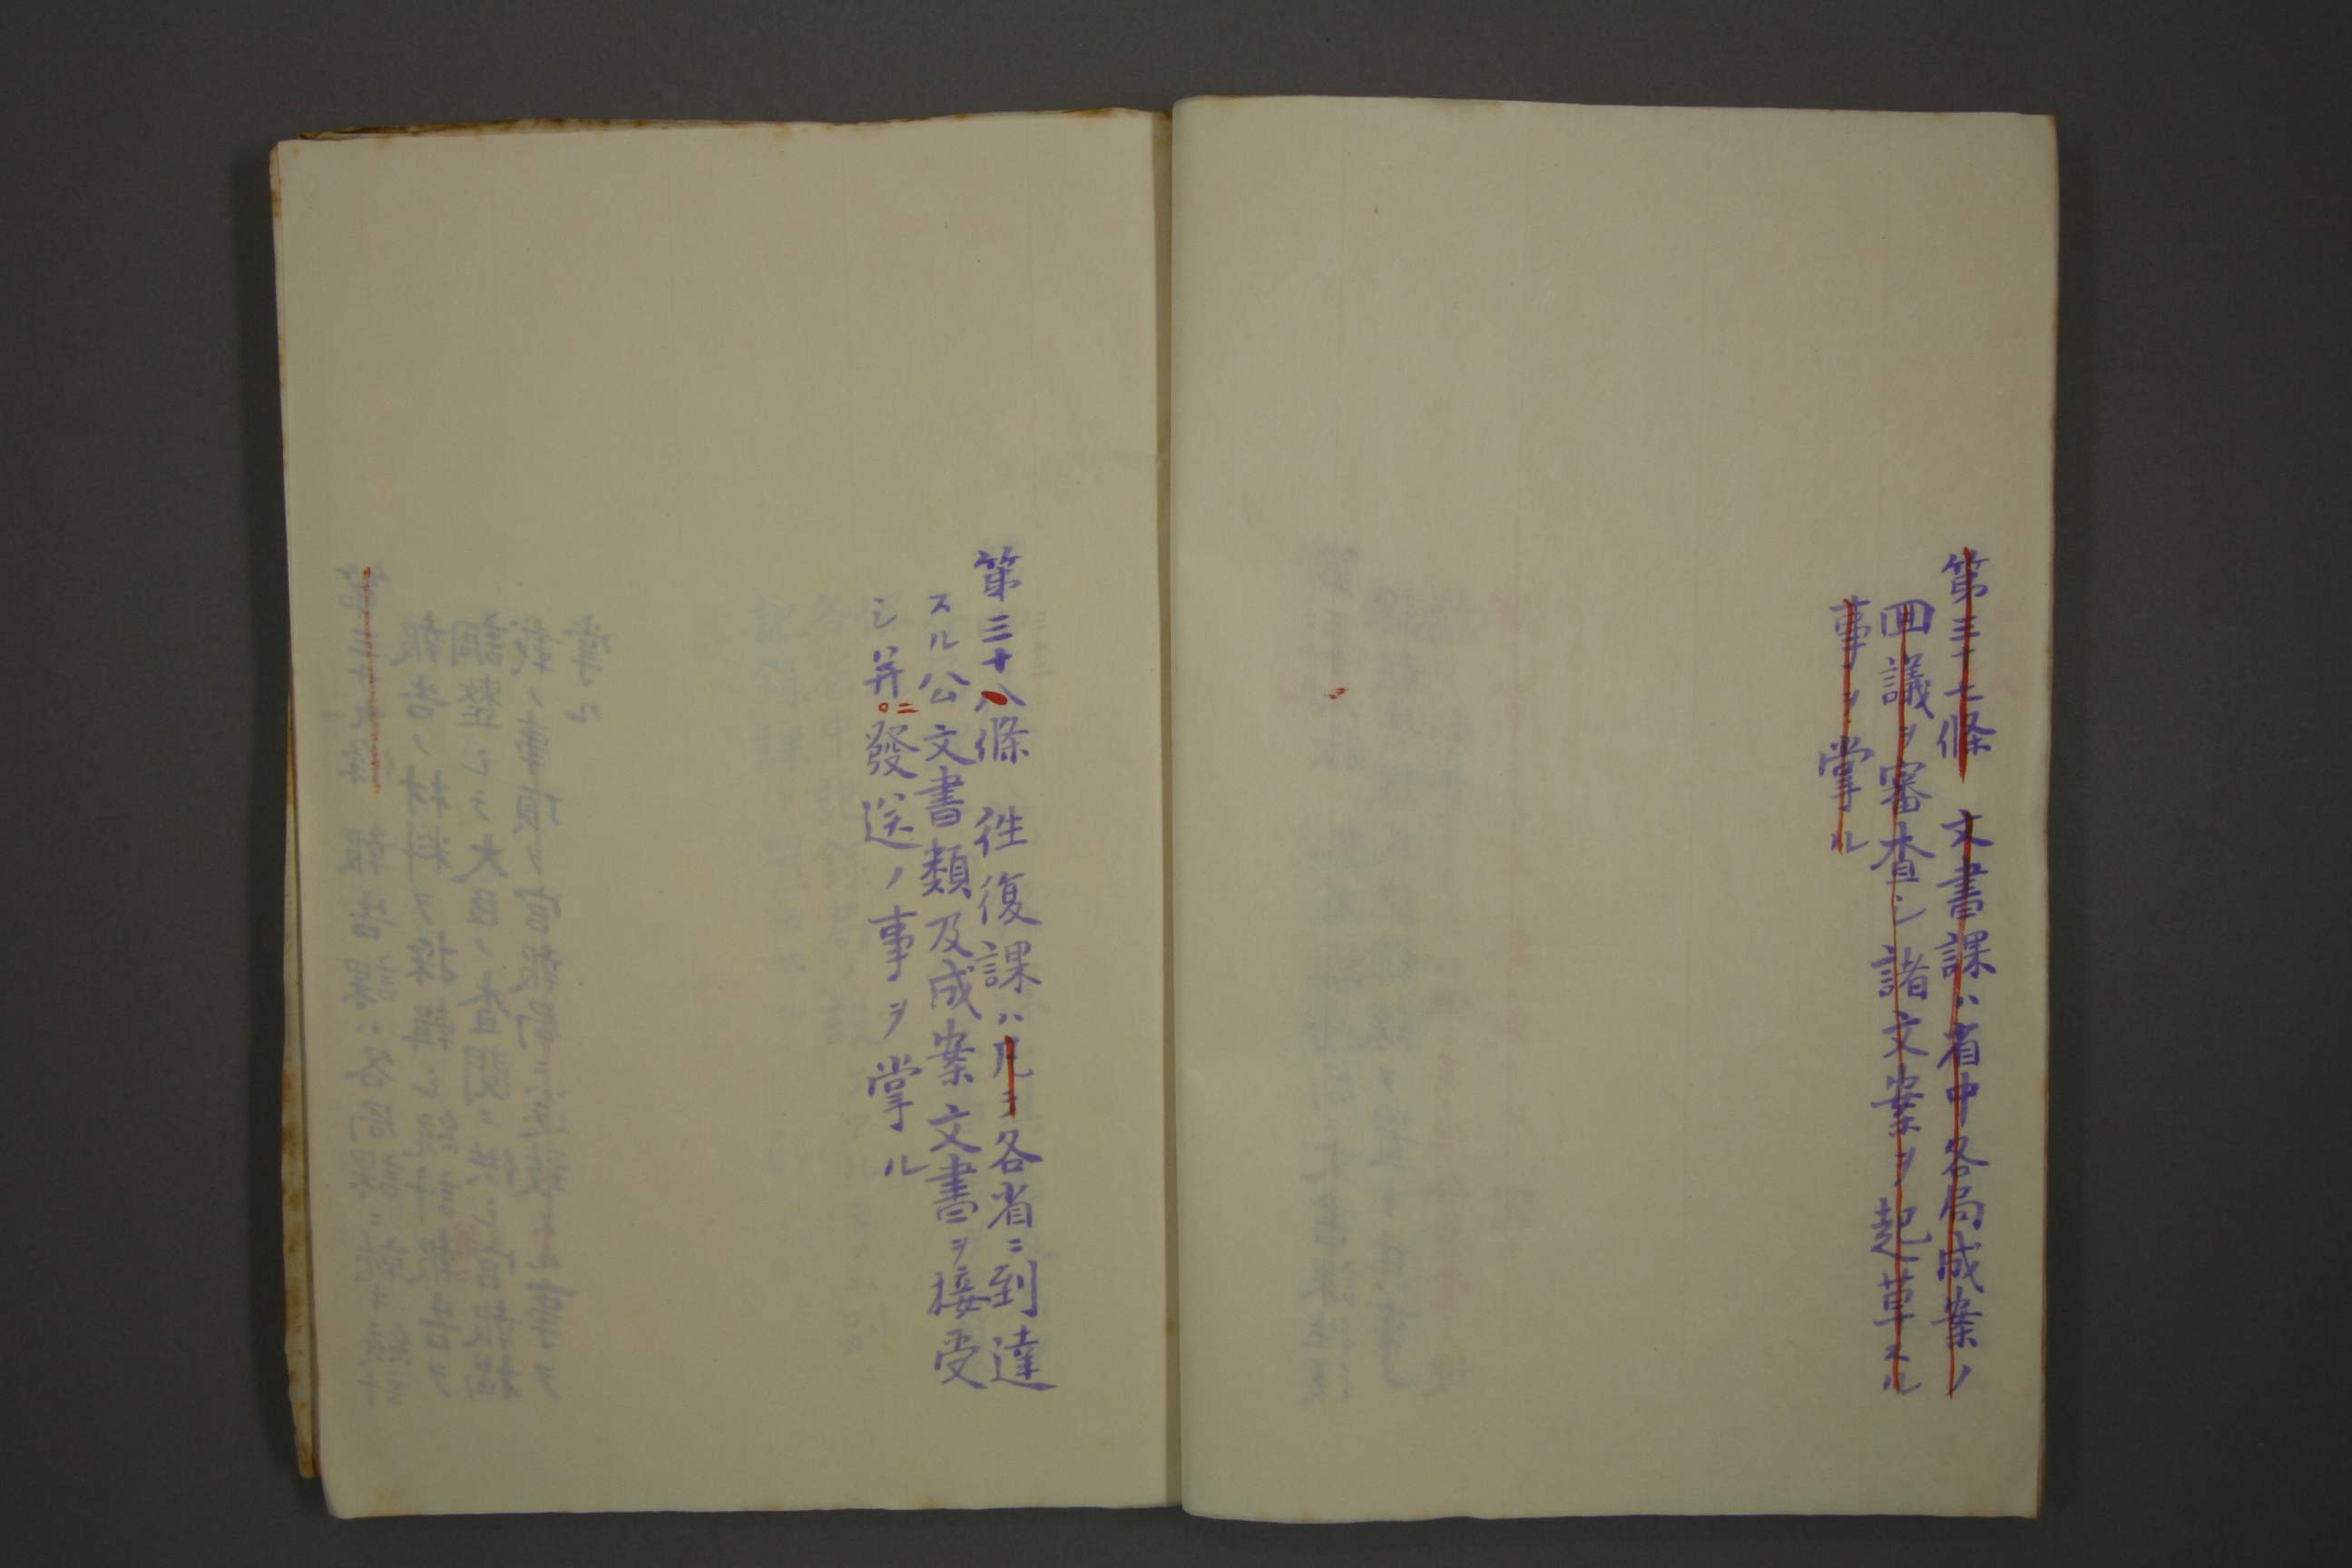 第三十七條　文書課ハ省中各局成案ノ
回議ヲ審査シ諸文案ヲ起草スル
事ヲ掌ル
第三十八條　往復課ハ凡ヲ各省ニ到達
スル公文書類及成案文書ヲ接受
シ并ニ發送ノ事ヲ掌ル